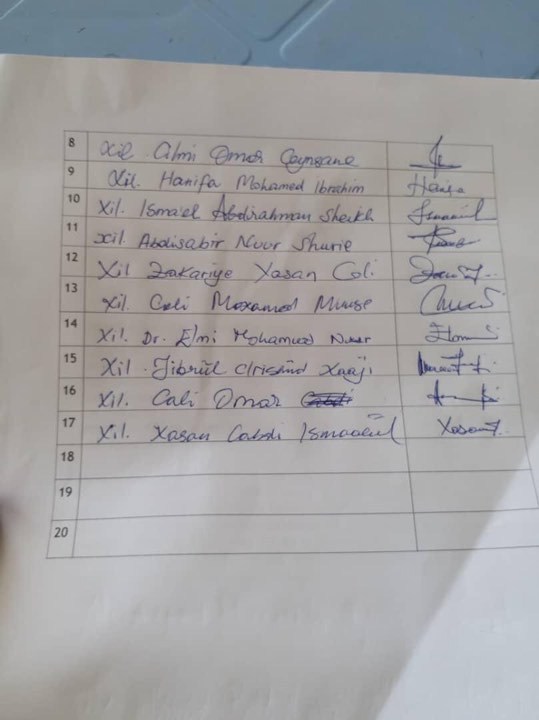 8 Xil. Cilmi Omar Qeyngane
9 Xil. Hanifa Mohamed Ibrahim Hanifa
10 Xil. Ismael Abdirahman Sheikh Ismaaiil
11 Xil. Abdisabir Nuur Shurie
12 Xil Zakariye Xasan Coli
13 Xil. Cali Maxamed Muuse
14 Xil. Dr. Elmi Mohamud Nuur
15 Xil. Jibriil Xaaji
16 Xil. Cali Omar
17 Xil. Xasan Cabdi Ismaaciil Xasan
18
19
20